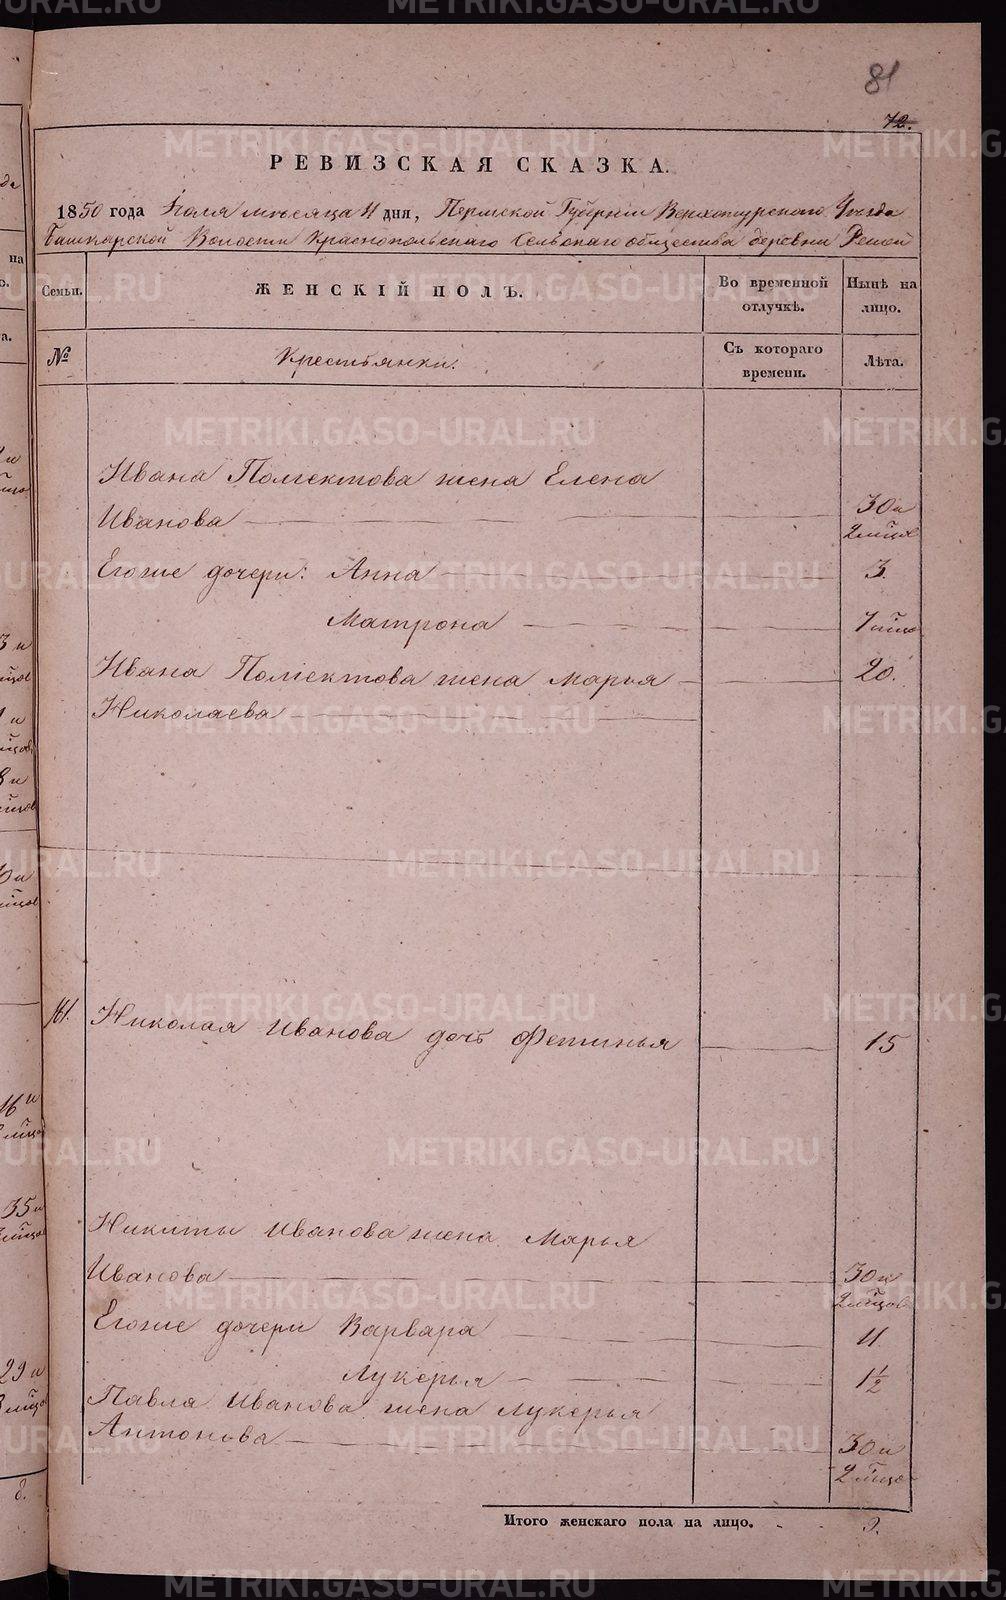 81
72.
РЕВИЗСКАЯ СКАЗКА.
1850 года Іюля мѣсяца 4 дня, Пермской Губерніи Верхотурскаго Уѣзда
Башкарской Волости Краснопольскаго Сельскаго общества деревни Решей
Семьи.
ЖЕНСКІЙ ПОЛЪ.
Во временной отлучкѣ.
Нынѣ на лицо.
№
Крестьянки.
Съ котораго времени.
Лѣта.
Ивана Полиектова жена Елена
Иванова 30 и 2 мѣца
Егоже дочери: Анна 3.
Матрона 7 мѣцо
Ивана Полиектова жена Марья 20.
Николаева
161. Николая Иванова дочь Фетинья 15
Никиты Иванова жена Марья
Иванова 30 и 2 мѣцов
Егоже дочери Варвара 11
Лукерья 1½
Павла Иванова жена Лукерья
Антонова 30 и 2 мѣцо
Итого женскаго пола на лицо. 9.
METRIKI.GASO-URAL.RU